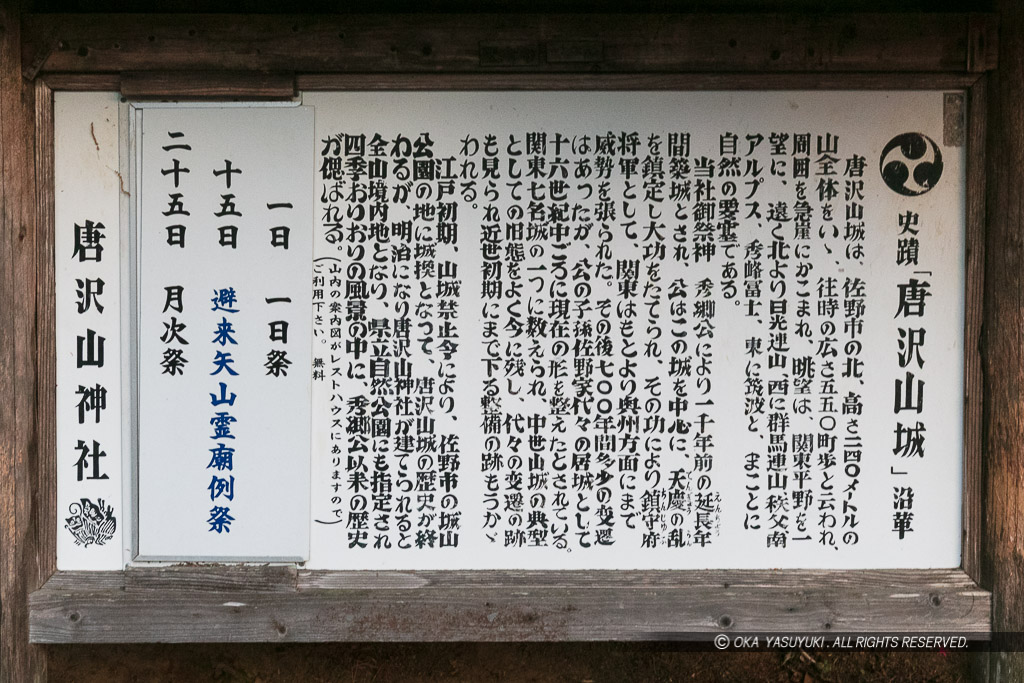 史蹟「唐沢山城」沿革
唐沢山城は、佐野市の北、高さ二四〇メートルの
山全体をいゝ、往時の広さ五五〇町歩と云われ、
周囲を急崖にかこまれ、眺望は、関東平野を一
望に、遠く北より日光連山、西に群馬連山秩父南
アルプス、秀峰富士、東に筑波と、まことに
自然の要塞である。
当社御祭神 秀郷公により一千年前の延長年
間築城とされ、公はこの城を中心に、天慶の乱
を鎮定し大功をたてられ、その功により鎮守府
将軍として、関東はもとより奥州方面にまで
威勢を張られた。その後七〇〇年間多少の変遷
はあったが、公の子孫佐野家代々の居城として
十六世紀中ごろに現在の形を整えたとされている。
関東七名城の一つに数えられ、中世山城の典型
としての旧態をよく今に残し、代々の変遷の跡
も見られ近世初期にまで下る整備の跡もうかゞ
われる。
江戸初期、山城禁止令により、佐野市の城山
公園の地に城換となって、唐沢山城の歴史が終
わるが、明治になり唐沢山神社が建てられると
全山境内地となり、県立自然公園にも指定され
四季おりおりの風景の中に、秀郷公以来の歴史
が偲ばれる。
(山内の案内図がレストハウスにありますので
ご利用下さい。 無料)
一日 一日祭
十五日 避来矢山霊廟例祭
二十五日 月次祭
唐沢山神社
© OKA YASUYUKI. ALL RIGHTS RESERVED.